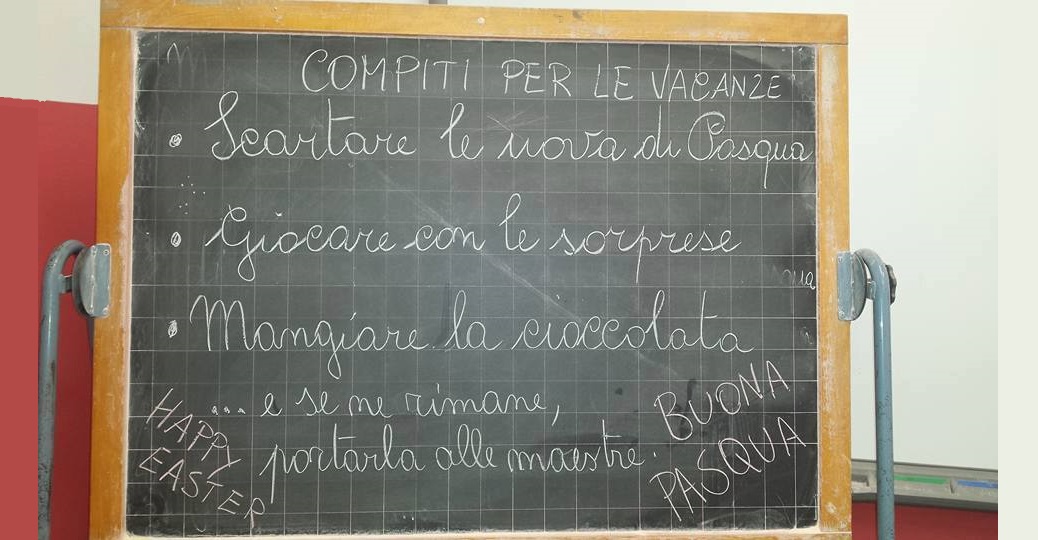 COMPITI PER LE VACANZE
• Scartare le uova di Pasqua
• Giocare con le sorprese
• Mangiare la cioccolata
... e se ne rimane,
portarla alle maestre.
HAPPY
EASTER
BUONA
PASQUA